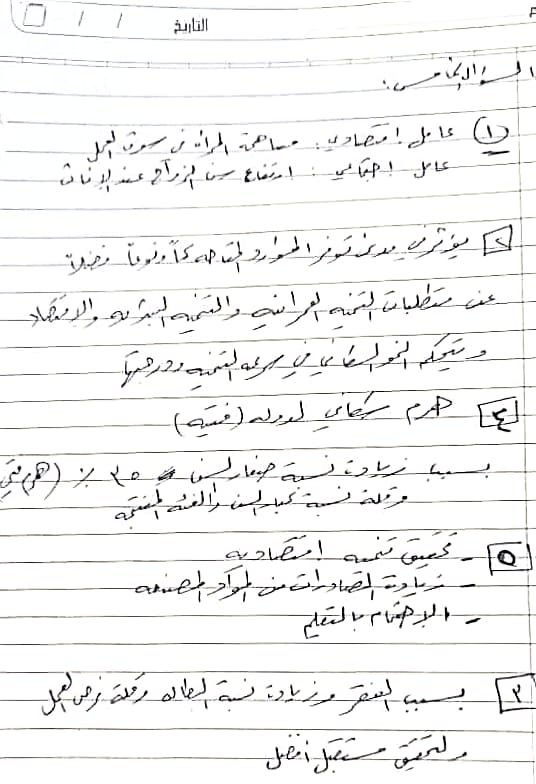 التاريخ / /
السؤال الخامس:
(١) عامل اقتصادي: مساهمة المرأة في سوق العمل
عامل اجتماعي: ارتفاع سن الزواج عند الإناث
٢ يؤثر في مدى توفر الموارد المتاحه كماً ونوعاً فضلاً
عن متطلبات التنميه العمرانيه والتنميه البشريه والاقتصاد
ويتحكم النمو السكاني في سرعه التنميه ودرجتها
٤ هرم سكاني لدوله (فتيه)
بسبب زيادة نسبة صغار السن ٣٥ ٪ (هرم فتي
وقلة نسبة كبار السن والفئه المنتجه
٥ - تحقيق تنميه اقتصاديه
- زيادة الصادرات من المواد المصنعه
- الاهتمام بالتعلم
٣ بسبب الفقر وزيادة نسبة البطاله وقلة فرص العمل
ولتحقيق مستقبل افضل